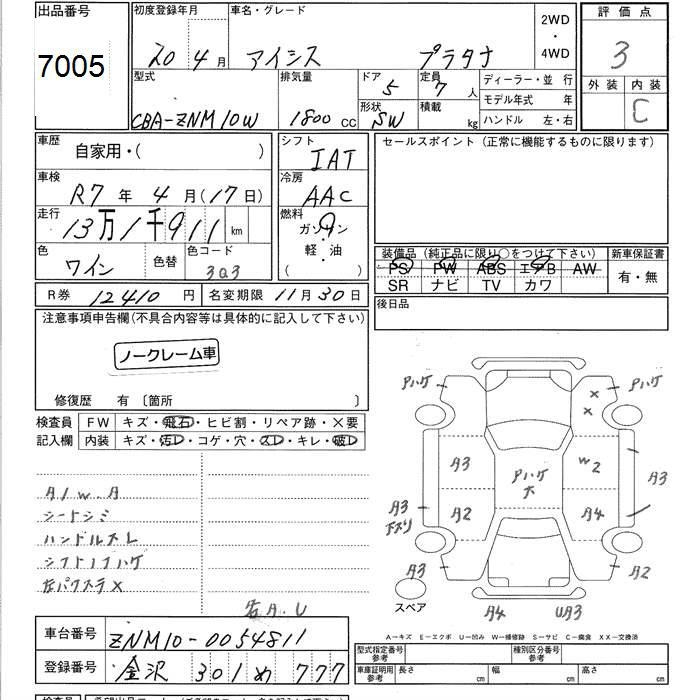 出品番号
7005
初度登録年月 車名・グレード 2WD・4WD
20年 4月 アイシス プラタナ
評価点
3
外装 内装
C
型式 排気量 ドア 定員 ディーラー・並行
CBA-ZNM10W 1800 CC 5 7人 モデル年式 年
形状 積載 ハンドル 左・右
SW kg
車歴 自家用・( )
シフト IAT
セールスポイント (正常に機能するものに限ります)
車検 R7年 4月(17日)
冷房 AAC
走行 13万1千911 km
燃料 ガソリン
軽・油
( )
色 ワイン 色替 色コード 3Q3
装備品 (純正品に限り○をつけて下さい) 新車保証書
PS PW ABS エアB AW 有・無
SR ナビ TV カワ
R券 12410円 名変期限 11月30日
後日品
注意事項申告欄(不具合内容等は具体的に記入して下さい)
ノークレーム車
修復歴 有 〔箇所 〕
検査員 FW キズ・飛石・ヒビ割・リペア跡・×要
記入欄 内装 キズ・汚レ・コゲ・穴・スレ・キレ・破レ
A/W.A
シートシミ
ハンドルスレ
シフトノブハゲ
Pハゲ
Pハゲ
× ×
A3
W2
Pハゲ
大
A3
A3
A2
A4
A3
A2
A4
UA3
スペア
右A.U
A―キズ E―エクボ U―凹み W―補修跡 S―サビ C―腐食 XX―交換済
車台番号 ZNM10-0054811
登録番号 金沢 301 め 777
型式指定番号 参考 種別区分番号 参考
車庫証明用 参考 長さ cm 幅 cm 高さ cm